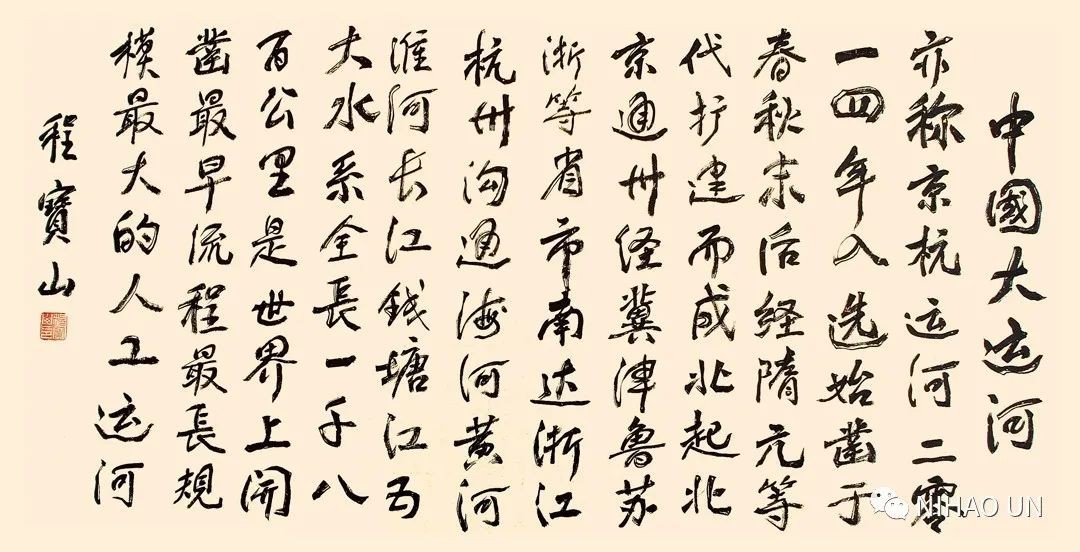 中國大运河
亦称京杭运河二零
一四年入选始凿于
春秋末后经隋元等
代扩建而成北起北
京通州经冀津鲁苏
浙等省市南达浙江
杭州沟通海河黄河
淮河长江钱塘江五
大水系全長一千八
百公里是世界上開
凿最早流程最長規
模最大的人工运河
程寶山
NIHAO UN